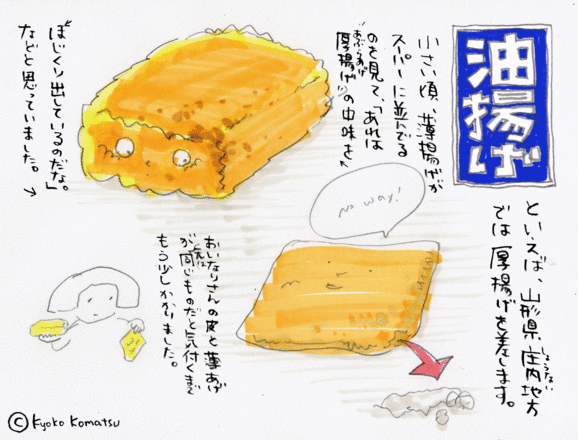 油揚げ
といえば、山形県庄内地方
しょうない
では厚揚げを差します。
小さい頃、薄揚げが
スーパーに並んでる
のを見て、「あれは
厚揚げの中味を
あぶらあげ
ほじくり出しているのだな。」
などと思っていました。→
No way!
おいなりさんの皮と薄あげ
が同じものだと気付くまで
もう少しかかりました。
© Kyoko Komatsu